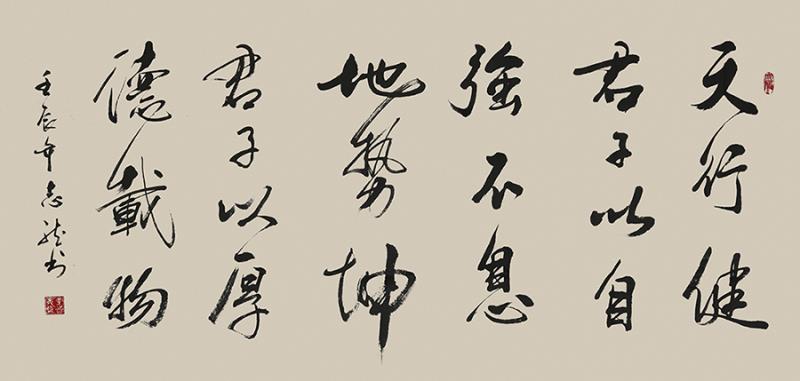 天行健
君子以自
強不息
地势坤
君子以厚
德載物
壬辰年志龙书